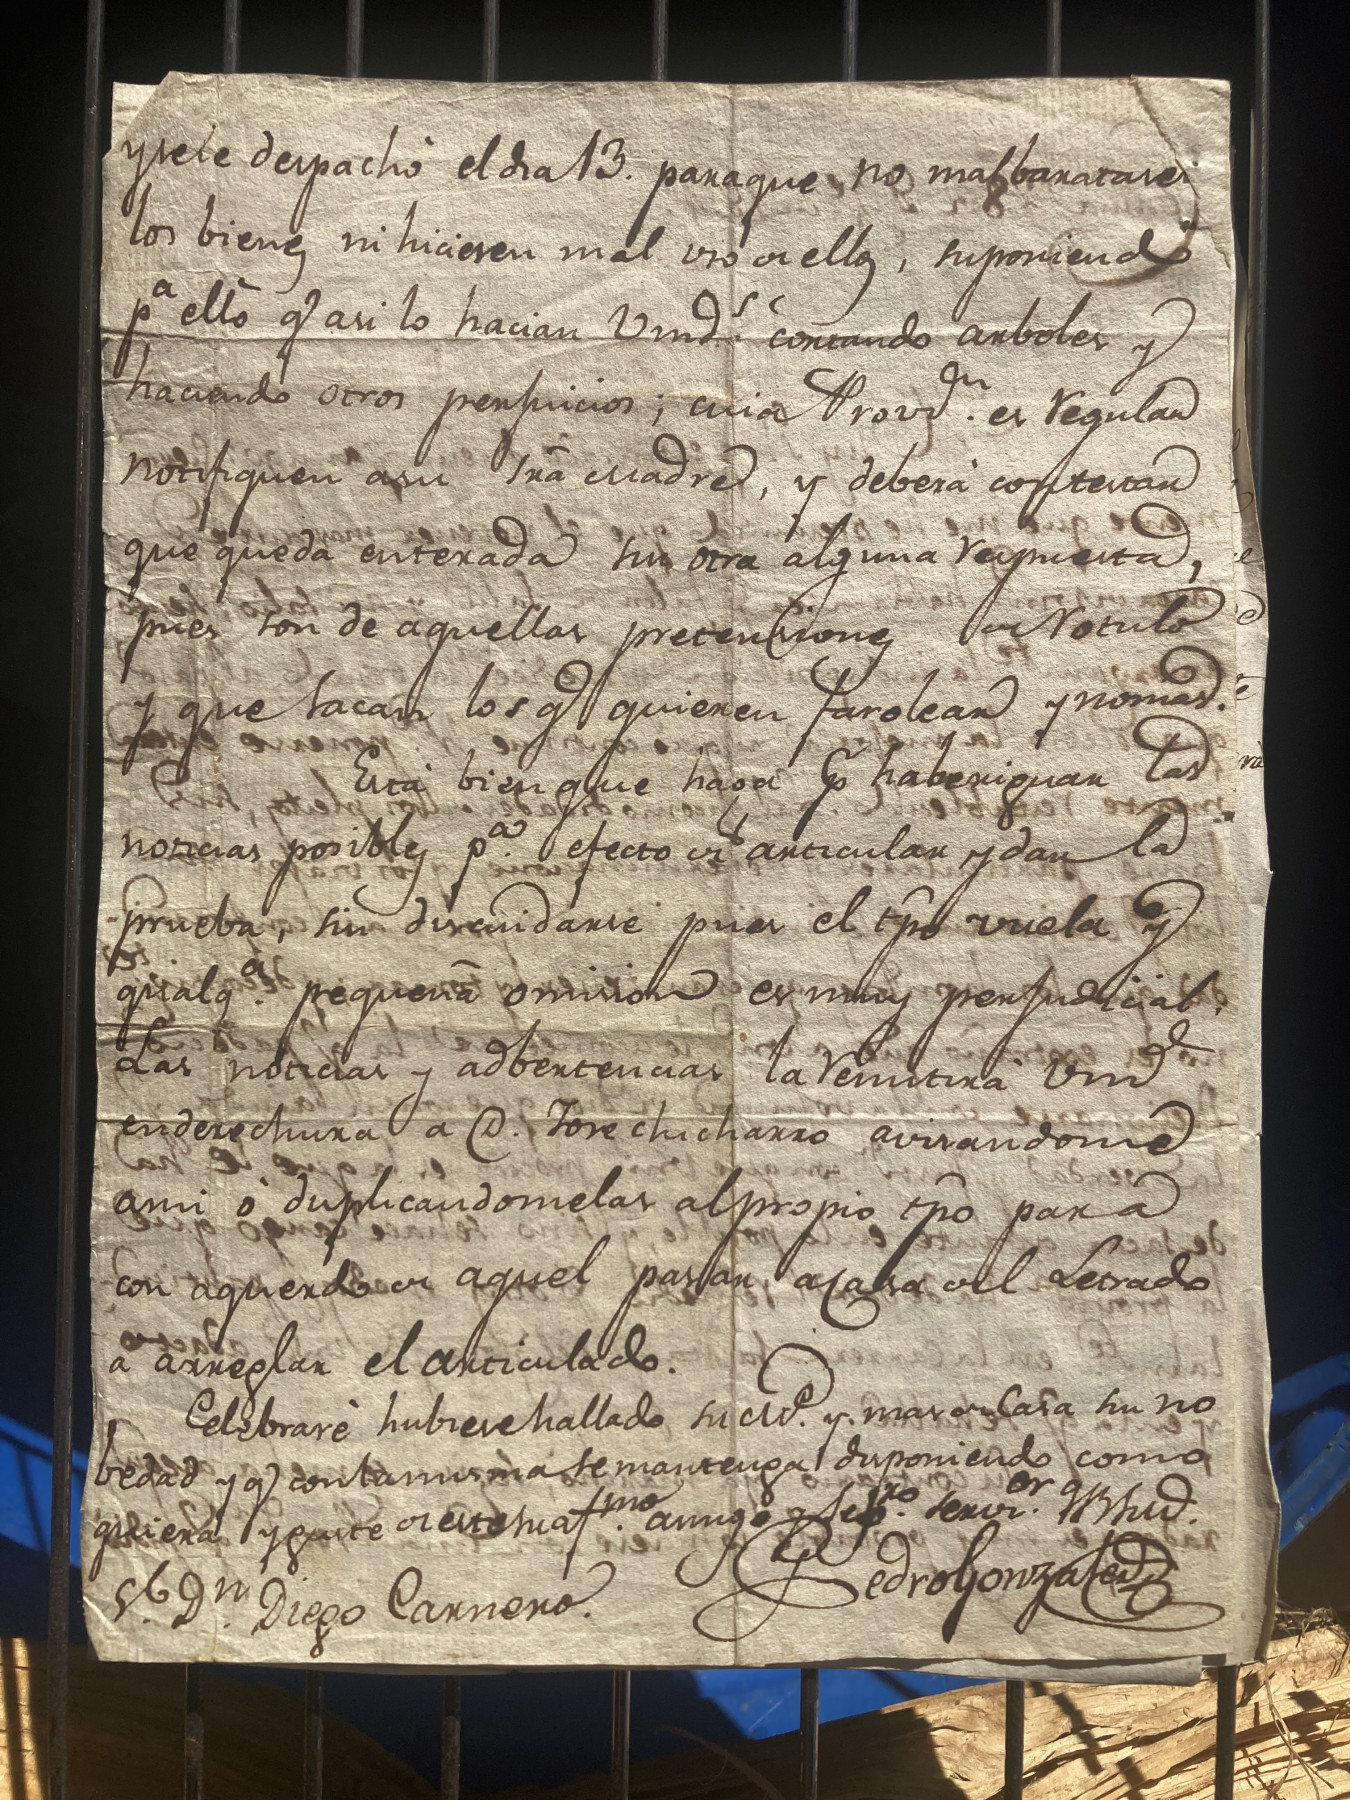 y se le despachò el dia 13. para que no malbaratasen
los bienes ni hiciesen mal uso de ellos, suponiendo
pa ello q asi lo hacian Vmds. cortando arboles y
haciendo otros perjuicios; cuia Provn. es regular
notifiquen a su Sra Madre, y deberà contestar
que queda enterada sin otra alguna respuesta,
pues son de aquellas pretensiones de Rotulo
y que sacan los q quieren farolear y no mas.
Està bien que haga p haberiguar las
noticias posibles pa. efecto de articular y dar la
prueba, sin descuidarse pues el tpo vuela y
qualqa. pequeña omision es muy perjudicial.
Las noticias y adbertencias la remitirà Vmd
en derechura a D. Jose chicharro avisandome
a mi ò duplicandomelas al propio tpo para
con aquerdo de aquel pasar a Casa del Letrado
a arreglar el articulado.
Celebrarè hubiese hallado su Me. y mas de Casa sin no
bedad y q con la misma se mantenga disponiendo como
quiera y guste de este su afmo. amigo y segro. servor. q B su M.
Pedro Gonzalez
Sor. Dn. Diego Carnero.